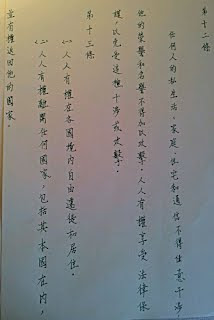 第十二條
任何人的私生活、家庭、住宅和通信不得任意干涉
他的榮譽和名譽不得加以攻擊。人人有權享受法律保
護，以免受這種干涉或攻擊。
第十三條
㈠人人有權在各國境內自由遷徙和居住。
㈡人人有權離開任何國家，包括其本國在內，
並有權返回他的國家。